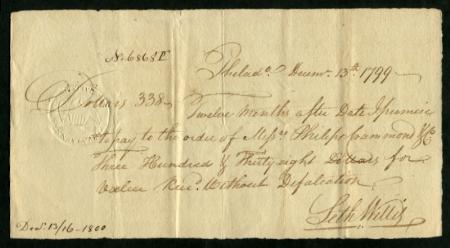 No. 6868 E
Philada. Decemr. 13th. 1799
Dollars 338 Twelve Months after Date I promise
to pay to the order of Messrs. Philips Cammond & Co
Three Hundred & Thirty eight Dollars for
Value Recd. Without Defalcation
Seth Willis
Decr. 13/16 - 1800